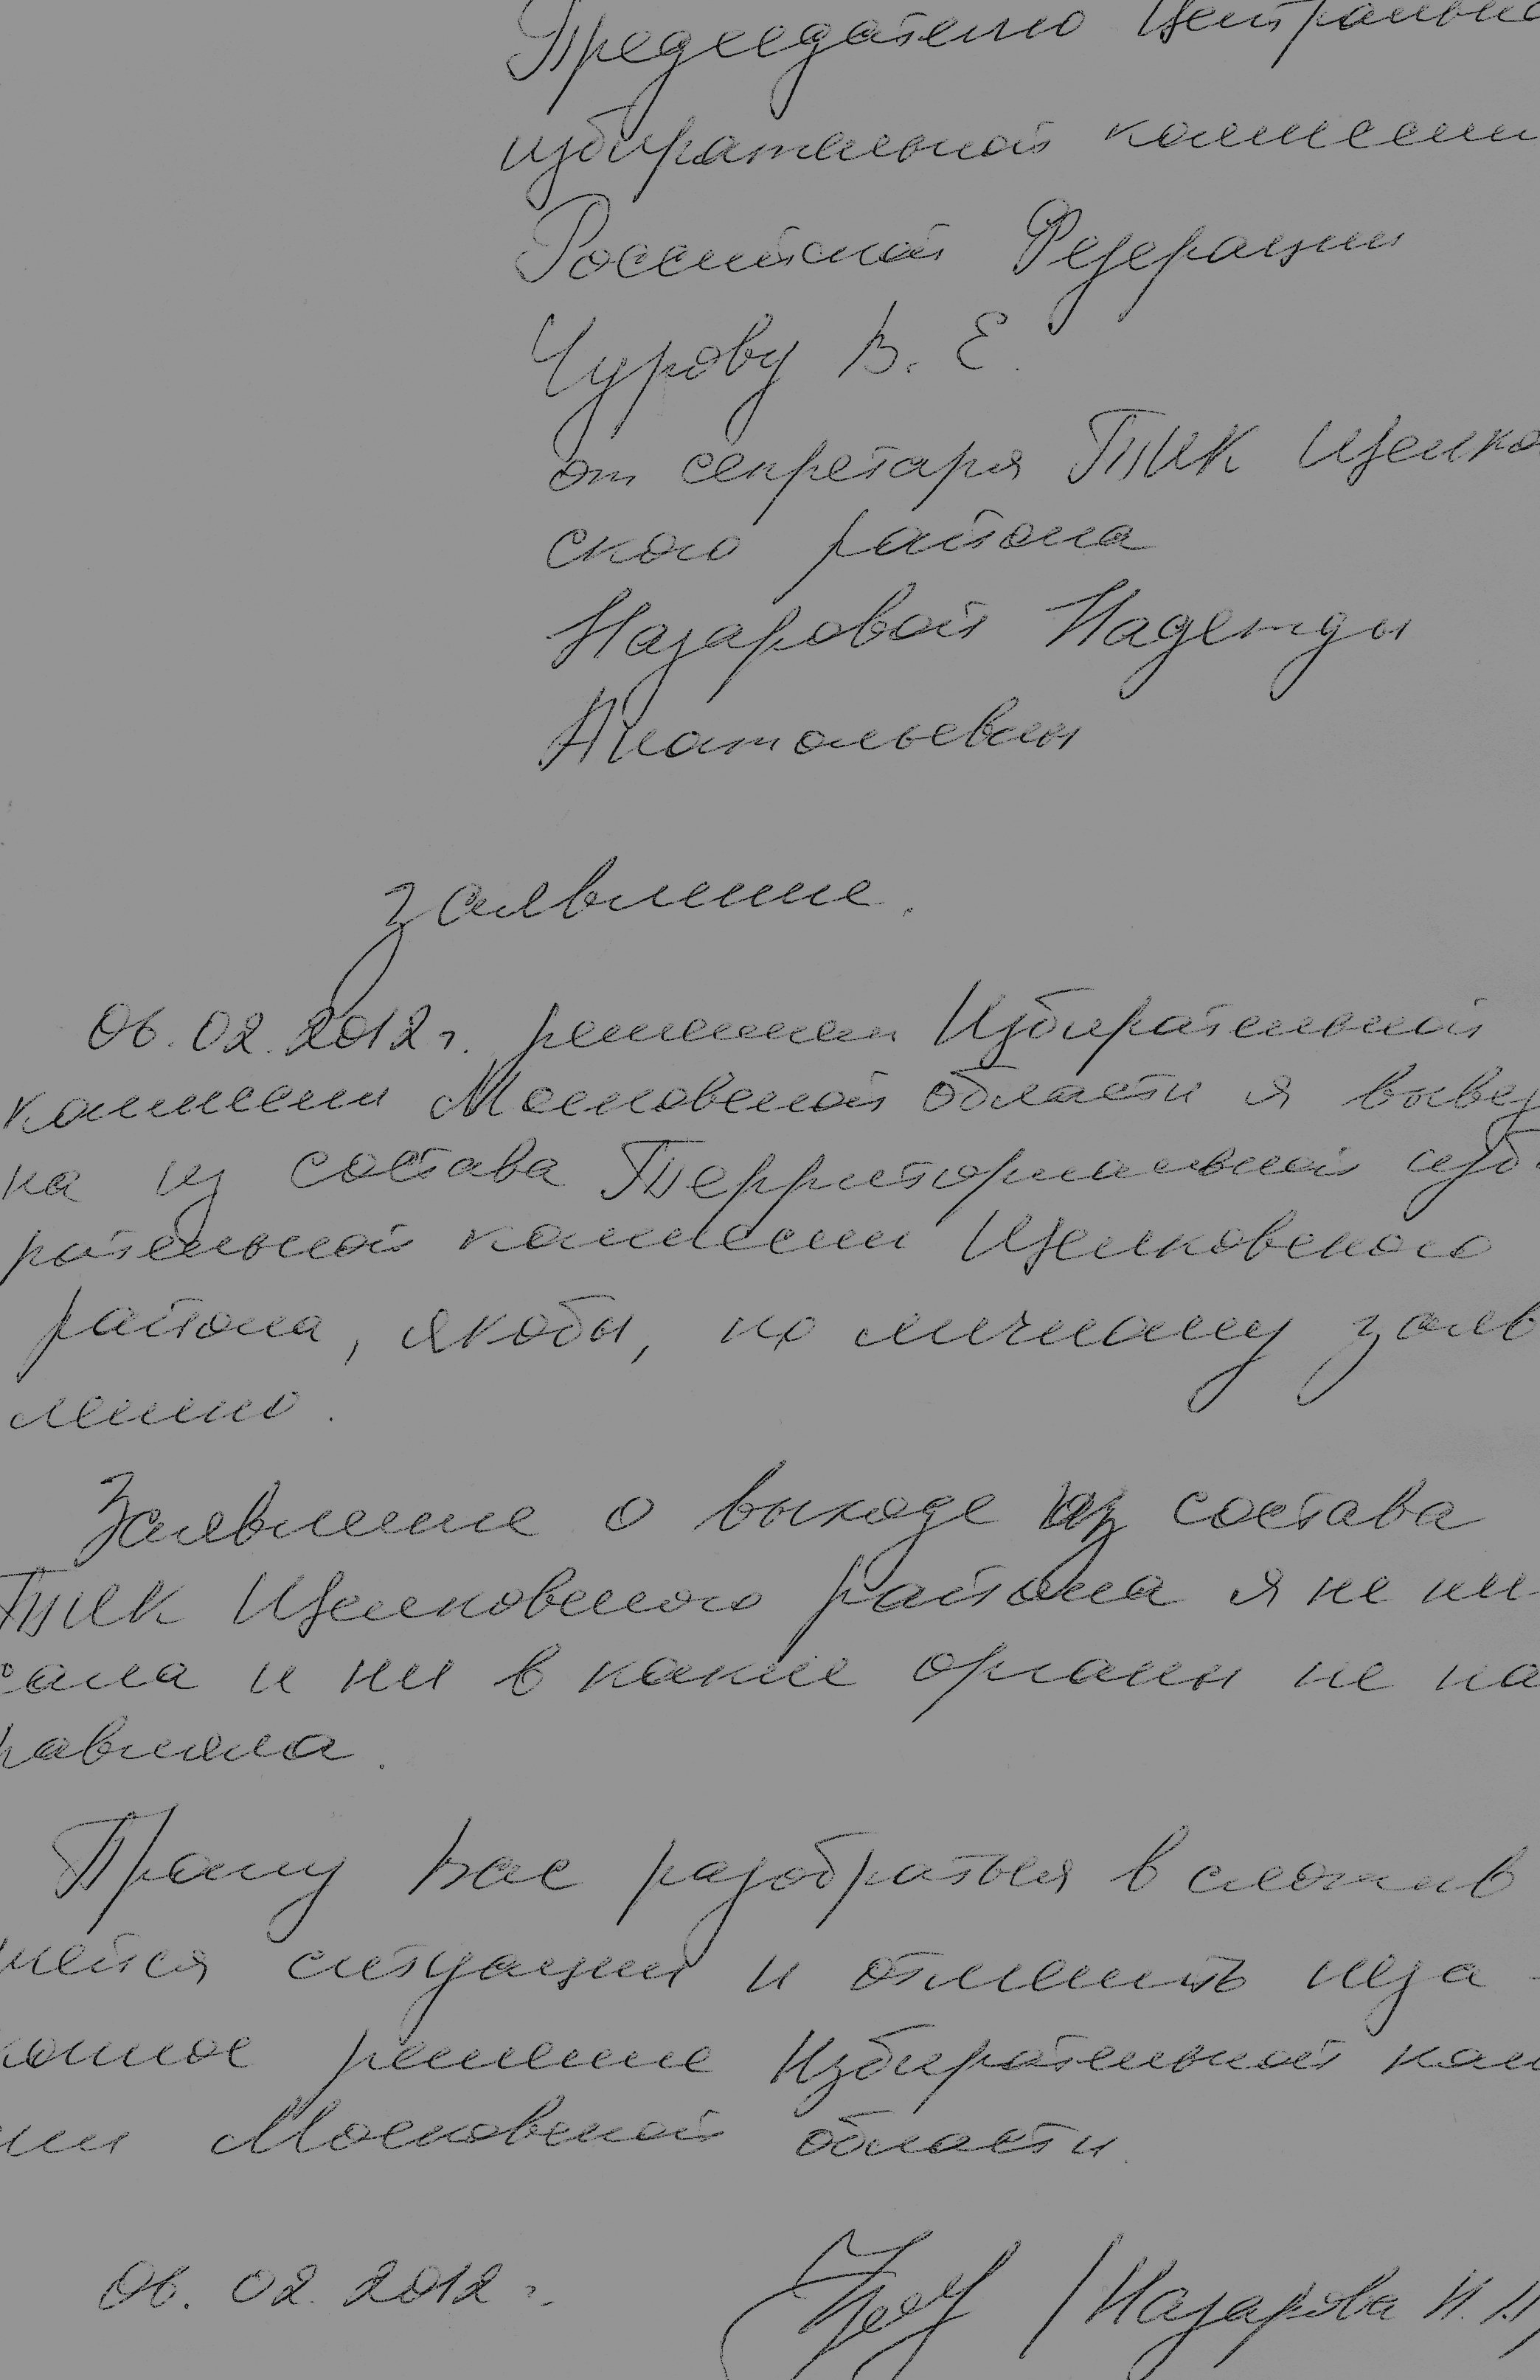 Председателю Центрально
избирательной комиссии
Российской Федерации
Чурову В. Е.
от секретаря ТИК Щелков
ского района
Назаровой Надежды
Анатольевны
Заявление.
06.02.2012г. решением Избирательной
комиссии Московской области я выведе
на из состава Территориальной изби
рательной комиссии Щелковского
района, якобы, по личному заяв
лению.
Заявление о выходе из состава
ТИК Щелковского района я не пи-
сала и ни в какие органы не на
правляла.
Прошу Вас разобраться в сложив
шейся ситуации и отменить неза-
конное решение Избирательной ком
сии Московской области.
06.02.2012г. /Назарова Н.А/